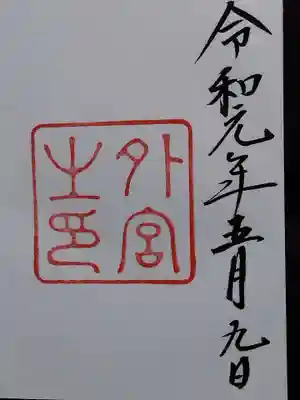 令和元年五月九日
外宮
之印